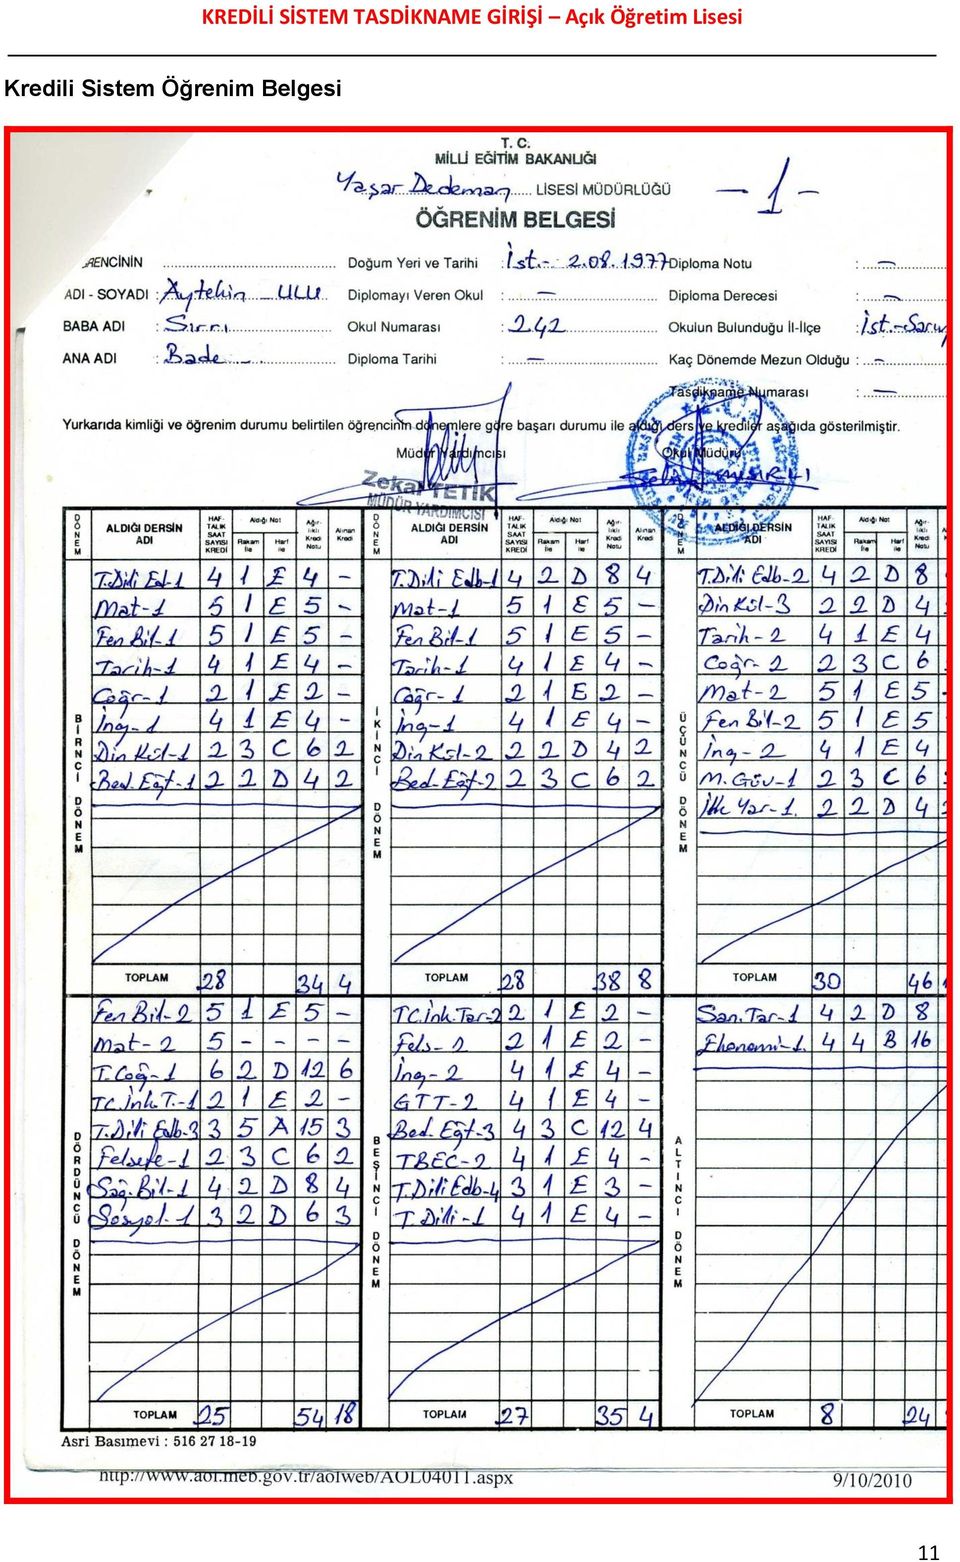 KREDİLİ SİSTEM TASDİKNAME GİRİŞİ – Açık Öğretim Lisesi
Kredili Sistem Öğrenim Belgesi
T. C.
MİLLİ EĞİTİM BAKANLIĞI
Yaşar Dedeman LİSESİ MÜDÜRLÜĞÜ -1-
ÖĞRENİM BELGESİ
RENCİNİN Doğum Yeri ve Tarihi : İst.- 2.08.1977 Diploma Notu : -
ADI - SOYADI : Aytekin ULU Diplomayı Veren Okul : - Diploma Derecesi : -
BABA ADI : Sırrı Okul Numarası : 242 Okulun Bulunduğu İl-İlçe : İst.-Sarıy
ANA ADI : Bade - Diploma Tarihi : - Kaç Dönemde Mezun Olduğu : -
Tasdikname Numarası : -
Yurkarıda kimliği ve öğrenim durumu belirtilen öğrencinin dönemlere göre başarı durumu ile aldığı ders ve krediler aşağıda gösterilmiştir.
Müdür Yardımcısı Okul Müdürü
Zekai TETİK
MÜDÜR YARDIMCISI
DÖNEM ALDIĞI DERSİN ADI HAFTALIK SAAT SAYISI KREDİ Aldığı Not Rakam ile Harf ile Ağırlıklı Kredi Notu Alınan Kredi DÖNEM ALDIĞI DERSİN ADI HAFTALIK SAAT SAYISI KREDİ Aldığı Not Rakam ile Harf ile Ağırlıklı Kredi Notu Alınan Kredi DÖNEM ALDIĞI DERSİN ADI HAFTALIK SAAT SAYISI KREDİ Aldığı Not Rakam ile Harf ile Ağırlıklı Kredi Notu
BİRİNCİ DÖNEM
T.Dili Ed-1 4 1 E 4 -
Mat-1 5 1 E 5 -
Fen Bil-1 5 1 E 5 -
Tarih-1 4 1 E 4 -
Coğr-1 2 1 E 2 -
İng-1 4 1 E 4 -
Din Kül-1 2 3 C 6 2
Bed. Eğt-1 2 2 D 4 2
TOPLAM 28 34 4
İKİNCİ DÖNEM
T.Dili Edb-1 4 2 D 8 4
Mat-1 5 1 E 5 -
Fen Bil-1 5 1 E 5 -
Tarih-1 4 1 E 4 -
Coğr-1 2 1 E 2 -
İng-1 4 1 E 4 -
Din Kül-2 2 2 D 4 2
Bed. Eğt-2 2 3 C 6 2
TOPLAM 28 38 8
ÜÇÜNCÜ DÖNEM
T.Dili Edb-2 4 2 D 8
Din Kül-3 2 2 D 4
Tarih-2 4 1 E 4
Coğr-2 2 3 C 6
Mat-2 5 1 E 5
Fen Bil-2 5 1 E 5
İng-2 4 1 E 4
M. Güv-1 2 3 C 6
İlk Yar-1. 2 2 D 4
TOPLAM 30 46
DÖRDÜNCÜ DÖNEM
Fen Bil-2 5 1 E 5 -
Mat-2 5 - - - -
T. Coğ-1 6 2 D 12 6
TC. İnk. T.-1 2 1 E 2 -
T.Dili Edb-3 3 5 A 15 3
Felsefe-1 2 3 C 6 2
Sağ. Bil-1 4 2 D 8 4
Sosyol.-1 3 2 D 6 3
TOPLAM 25 54 18
BEŞİNCİ DÖNEM
TC.İnk.Tar-2 2 1 E 2 -
Fels-2 2 1 E 2 -
İng-2 4 1 E 4 -
GTT-2 4 1 E 4 -
Bed. Eğt-3 4 3 C 12 4
TBEC-2 4 1 E 4 -
T.Dili Edb-4 3 1 E 3 -
T. Dili-1 4 1 E 4 -
TOPLAM 27 35 4
ALTINCI DÖNEM
San. Tar-1 4 2 D 8
Ekonomi-1. 4 4 B 16
TOPLAM 8 24
Asri Basımevi : 516 27 18-19
http://www.aol.meb.gov.tr/aolweb/AOL04011.aspx 9/10/2010
11